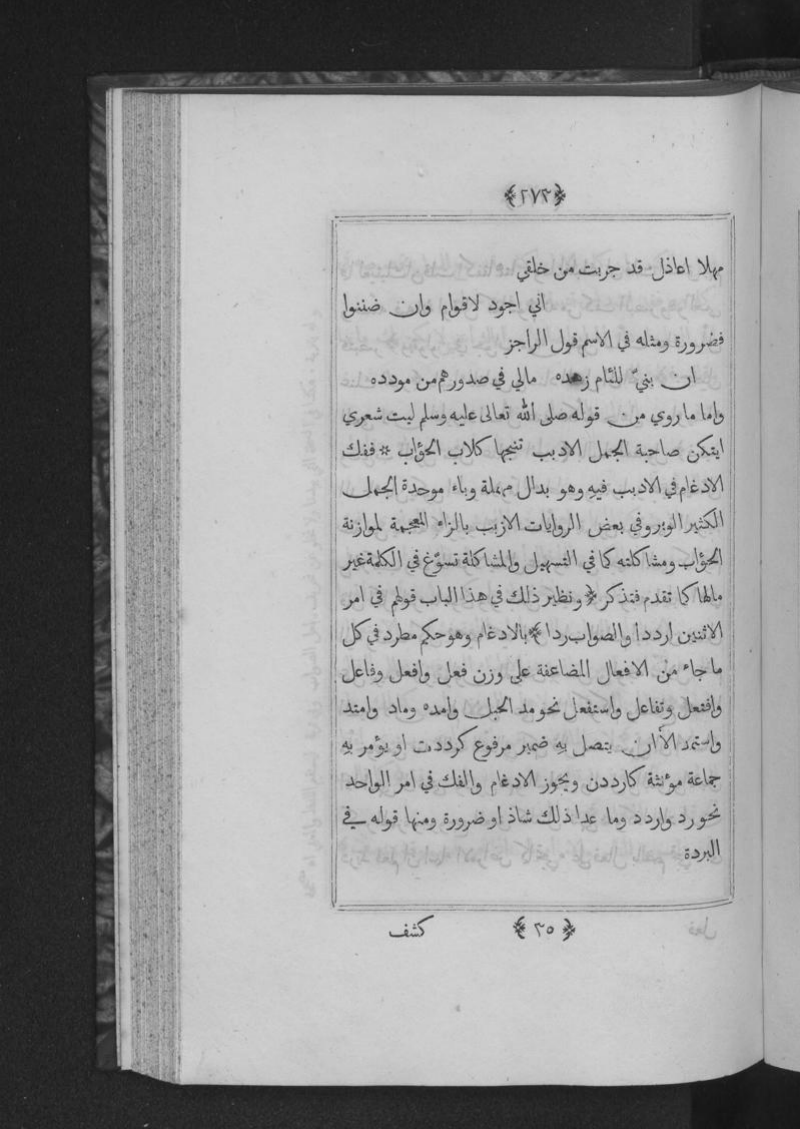 ﴿٢٧٣﴾
مهلا اعاذل قد جربت من خلقي
اني اجود لاقوام وان ضننوا
فضرورة ومثله في الاسم قول الراجز
ان بنيّ للئام زهده مالي في صدورهم من مودده
واما ما روي من قوله صلى الله تعالى عليه وسلم ليت شعري
ايتكن صاحبة الجمل الادبب تنبحها كلاب الحوٴاب * ففك
الادغام في الادبب فيه وهو بدال مهملة وباء موحدة الجمل
الكثير الوبر وفي بعض الروايات الازبب بالزاء المعجمة لموازنة
الحوٴاب ومشاكلته كما في التسهيل والمشاكلة تسوّغ في الكلمة غير
مالها كما تقدم فتذكر ﴿ ونظير ذلك في هذا الباب قولهم في امر
الاثنين ارددا والصواب ردا ﴾ بالادغام وهو حكم مطرد في كل
ما جاء من الافعال المضاعفة على وزن فعل وافعل وفاعل
وافتعل وتفاعل واستفعل نحو مد الحبل وامده وماد وامتد
واستمد الأ ان يتصل به ضمير مرفوع كرددت او يؤمر به
جماعة مؤنثة كارددن ويجوز الادغام والفك في امر الواحد
نحو رد واردد وما عدا ذلك شاذ او ضرورة ومنها قوله في
البردة
﴿ ٣٥ ﴾ كشف